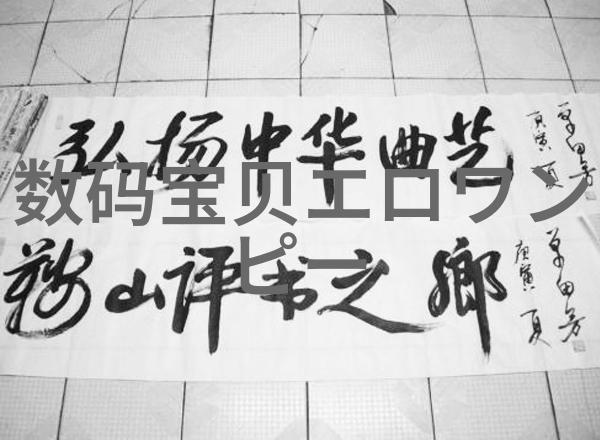 弘扬中华曲艺
庚寅 夏
单田芳
数码宝贝エロワン
ピー
鞍山评书之乡
庚寅 夏
单田芳